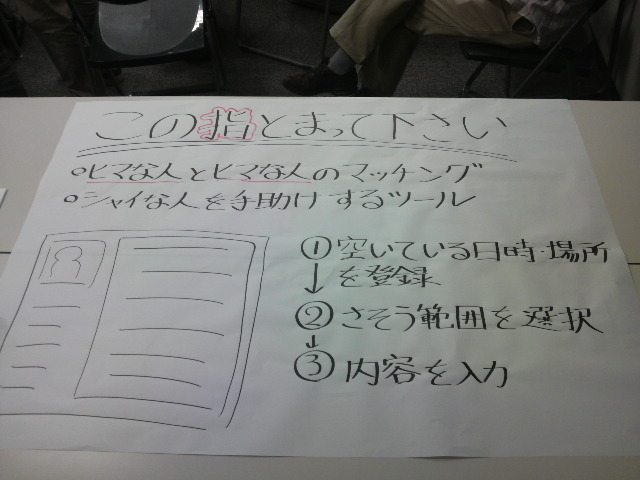 この指とまって下さい
○ヒマな人とヒマな人のマッチング
○シャイな人を手助けするツール
①空いている日時・場所
を登録
↓
②さそう範囲を選択
↓
③内容を入力